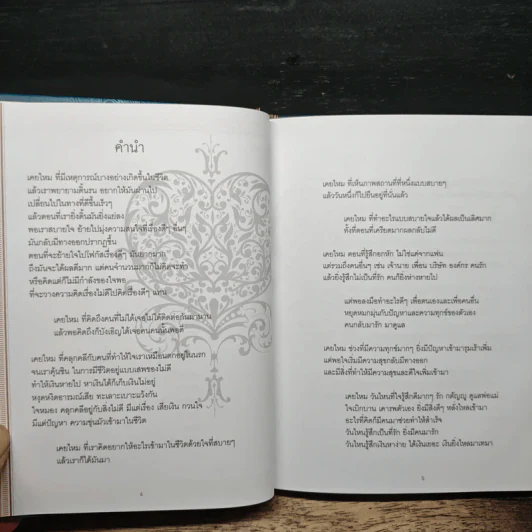 คำนำ
เคยไหม ที่มีเหตุการณ์บางอย่างเกิดขึ้นในชีวิต
แล้วเราพยายามดิ้นรน อยากให้มันผ่านไป
เปลี่ยนไปในทางที่ดีขึ้นเร็วๆ
แล้วตอนที่เรายิ่งดิ้นมันยิ่งแย่ลง
พอเราสบายใจ ย้ายไปมุ่งความสนใจที่เรื่องดีๆ อื่นๆ
มันกลับมีทางออกปรากฏขึ้น
ตอนที่จะย้ายใจไปโฟกัสเรื่องดีๆ มันยากมาก
ถึงมันจะได้ผลดีมาก แต่คนจำนวนมากก็ไม่คิดจะทำ
หรือคิดแต่ก็ไม่มีกำลังของใจพอ
ที่จะวางความคิดเรื่องไม่ดีไปคิดเรื่องดีๆ แทน
เคยไหม ที่คิดถึงคนที่ไม่ได้เจอไม่ได้คิดต่อกันมานาน
แล้วพอคิดถึงก็บังเอิญได้เจอคนคนนั้นพอดี
เคยไหม ที่คลุกคลีกับคนที่ทำให้ใจเราเหมือนตกอยู่ในนรก
จนเราคุ้นชิน ในการมีชีวิตอยู่แบบเสพของไม่ดี
ทำให้เงินหายไป หาเงินได้ก็เก็บเงินไม่อยู่
หงุดหงิดอารมณ์เสีย ทะเลาะเบาะแว้งกัน
ใจหมอง คลุกคลีอยู่กับสิ่งไม่ดี มีแต่เรื่อง เสียเงิน กวนใจ
มีแต่ปัญหา ความขุ่นมัวเข้ามาในชีวิต
เคยไหม ที่เราคิดอยากให้อะไรเข้ามาในชีวิตด้วยใจที่สบายๆ
แล้วเราก็ได้มันมา
เคยไหม ที่เห็นภาพสถานที่ที่หนึ่งแบบสบายๆ
แล้ววันหนึ่งก็ไปยืนอยู่ที่นั่นแล้ว
เคยไหม ที่ทำอะไรแบบสบายใจแล้วได้ผลเป็นเลิศมาก
ทั้งที่ตอนที่เครียดมากผลกลับไม่ดี
เคยไหม ตอนที่รู้สึกอกหัก ไม่ใช่แค่จากแฟน
แต่รวมถึงคนอื่นๆ เช่น เจ้านาย เพื่อน บริษัท องค์กร คนรัก
แล้วยิ่งรู้สึกไม่เป็นที่รัก คนก็ยิ่งห่างหายไป
แต่พอลงมือทำอะไรดีๆ เพื่อตนเองและเพื่อคนอื่น
หยุดหมกมุ่นกับปัญหาและความทุกข์ของตัวเอง
คนกลับมารัก มาดูแล
เคยไหม ช่วงที่มีความทุกข์มากๆ ยิ่งมีปัญหาเข้ามารุมเร้าเพิ่ม
แต่พอใจเริ่มมีความสุขกลับมีทางออก
และมีสิ่งที่ทำให้มีความสุขและดีใจเพิ่มเข้ามา
เคยไหม วันไหนที่ใจรู้สึกดีมากๆ รัก กตัญญู ดูแลพ่อแม่
ใจเบิกบาน เคารพตัวเอง ยิ่งมีสิ่งดีๆ หลั่งไหลเข้ามา
อะไรที่คิดก็มีคนมาช่วยทำให้สำเร็จ
วันไหนรู้สึกเป็นที่รัก ยิ่งมีคนมารัก
วันไหนรู้สึกเงินหาง่าย ได้เงินเยอะ เงินยิ่งไหลมาเทมา
5